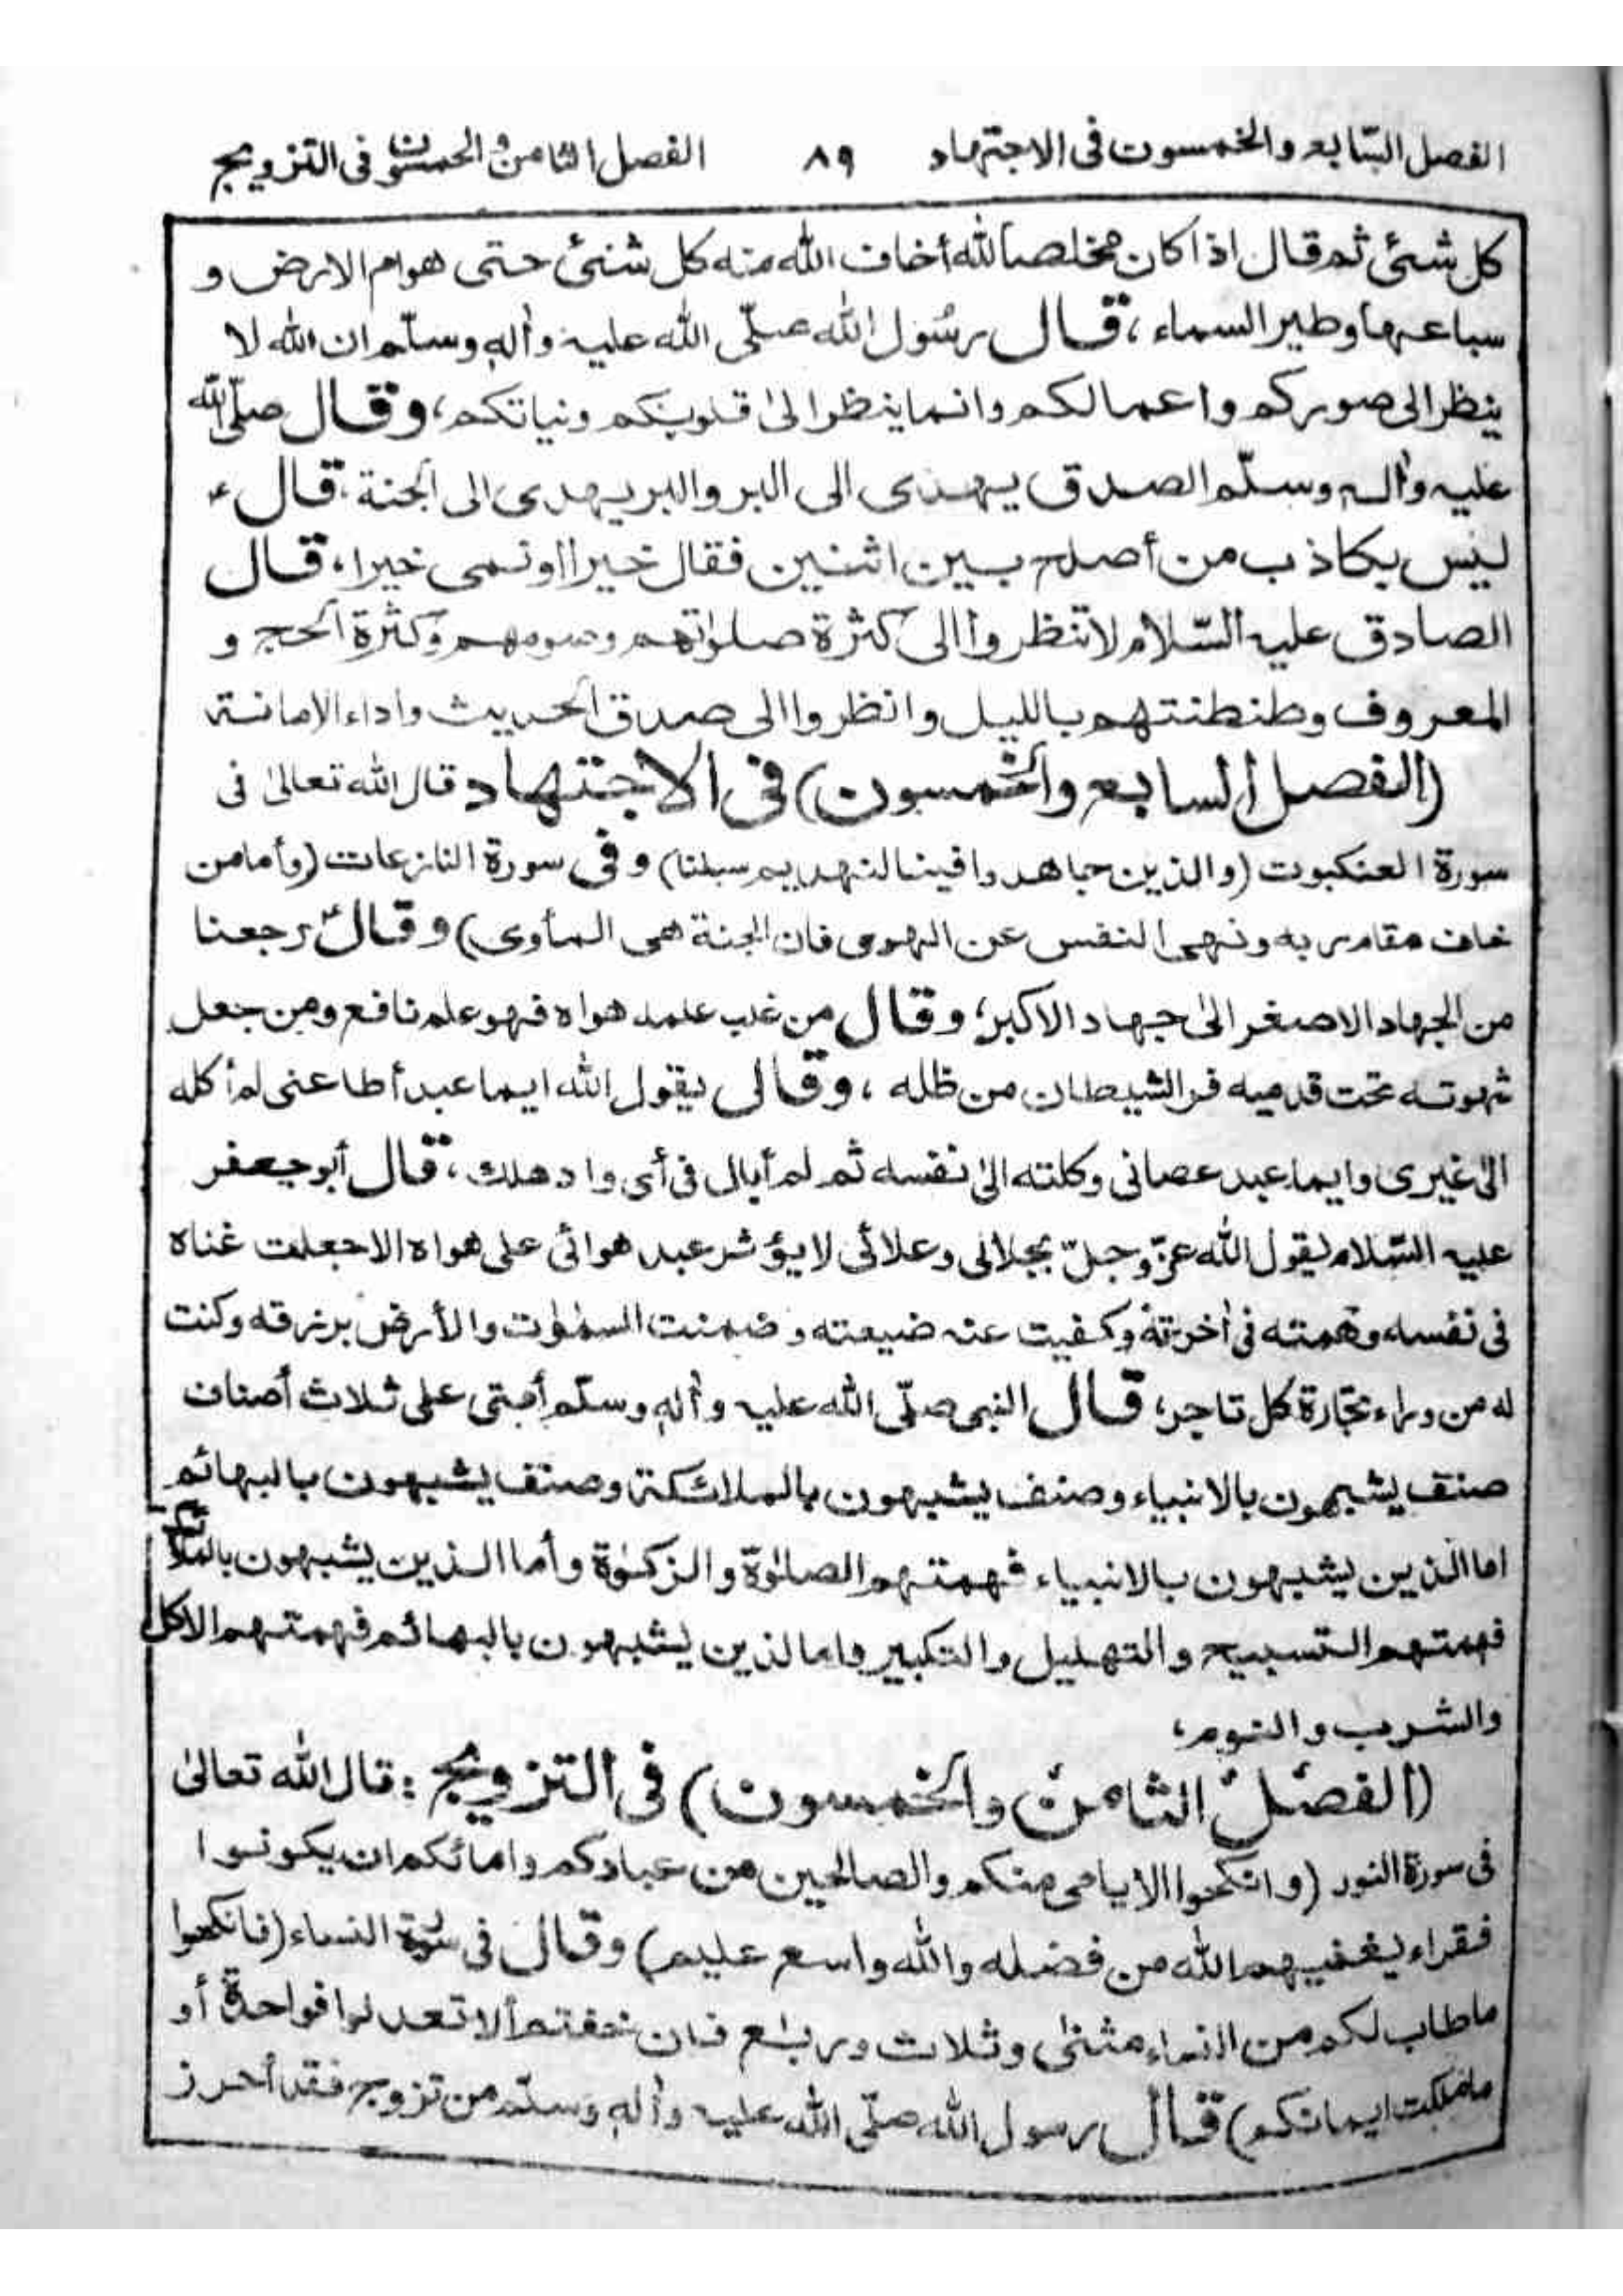 الفصل السّابع والخمسون فى الاجتهاد ٨٩ الفصل الثامن والخمسون فى التزويج
كل شئ ثم قال اذا كان مخلصاً لله أخاف الله منه كل شئ حتى هوام الارض و
سباعها وطير السماء، قال رسُول الله صلّى الله عليه واٰله وسلّم ان الله لا
ينظر الى صوركم واعمالكم وانما ينظر الىٰ قلوبكم ونياتكم، وقال صلّى الله
عليه واٰله وسلّم الصدق يهدى الى البر والبر يهدى الى الجنة، قال ؏
ليس بكاذب من أصلح بين اثنين فقال خيرا او نمى خيرا، قال
الصادق عليه السّلام لا تنظروا الى كثرة صلوٰتهم وصومهم وكثرة الحج و
المعروف وطنطنتهم بالليل وانظروا الى صدق الحديث واداء الامانة
(الفصل السابع والخمسون) فى الاجتهاد قال الله تعالىٰ فى
سورة العنكبوت (والذين جاهدوا فينا لنهديهم سبلنا) وفى سورة النازعات (وأما من
خاف مقام ربه ونهى النفس عن الهوى فان الجنة هى المأوى) وقال ؐ رجعنا
من الجهاد الاصغر الىٰ جهاد الاكبر، وقال من غلب علمه هواه فهو علم نافع ومن جعل
شهوته تحت قدميه فر الشيطان من ظله، وقال يقول الله ايما عبد أطاعنى لم أكله
الىٰ غيرى وايما عبد عصانى وكلته الىٰ نفسه ثم لم أبال فى أى واد هلك، قال أبو جعفر
عليه السّلام يقول الله عزّ وجلّ بجلالى وعلائى لا يؤثر عبد هوائى على هواه الا جعلت غناه
فى نفسه وهمته فى اٰخرته وكفيت عنه ضيعته وضمنت السمٰوٰت والأرض برزقه وكنت
له من وراء تجارة كل تاجر، قال النبى صلّى الله عليه واٰله وسلّم أمتى على ثلاث أصناف
صنف يشبهون بالانبياء وصنف يشبهون بالملائكة وصنف يشبهون بالبهائم
اما الذين يشبهون بالانبياء فهمتهم الصلوٰة والزكوٰة وأما الذين يشبهون بالملائكة
فهمتهم التسبيح والتهليل والتكبير واما لذين يشبهون بالبهائم فهمتهم الاكل
والشرب والنوم،
(الفصل الثامن والخمسون) فى التزويج: قال الله تعالىٰ
فى سورة النور (وانكحوا الايامى منكم والصالحين من عبادكم وامائكم ان يكونوا
فقراء يغنيهم الله من فضله والله واسع عليم) وقال فى سورة النساء (فانكحوا
ما طاب لكم من النساء مثنىٰ وثلاث وربٰع فان خفتم ألا تعدلوا فواحدة أو
ما ملكت ايمانكم) قال رسول الله صلّى الله عليه واٰله وسلّم من تزوج فقد أحرز